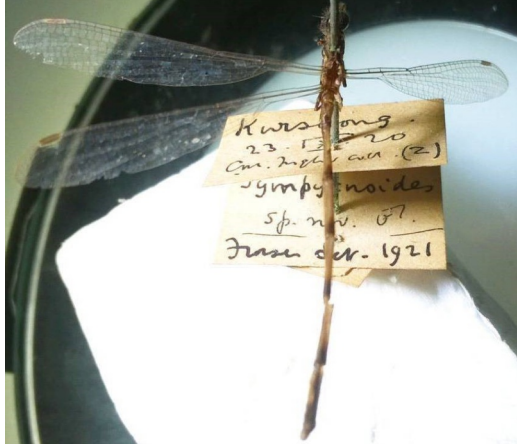 Kurseong.
23. 20
Coll. (2)
Sympycnoides
Sp. nov.
Fraser det. 1921